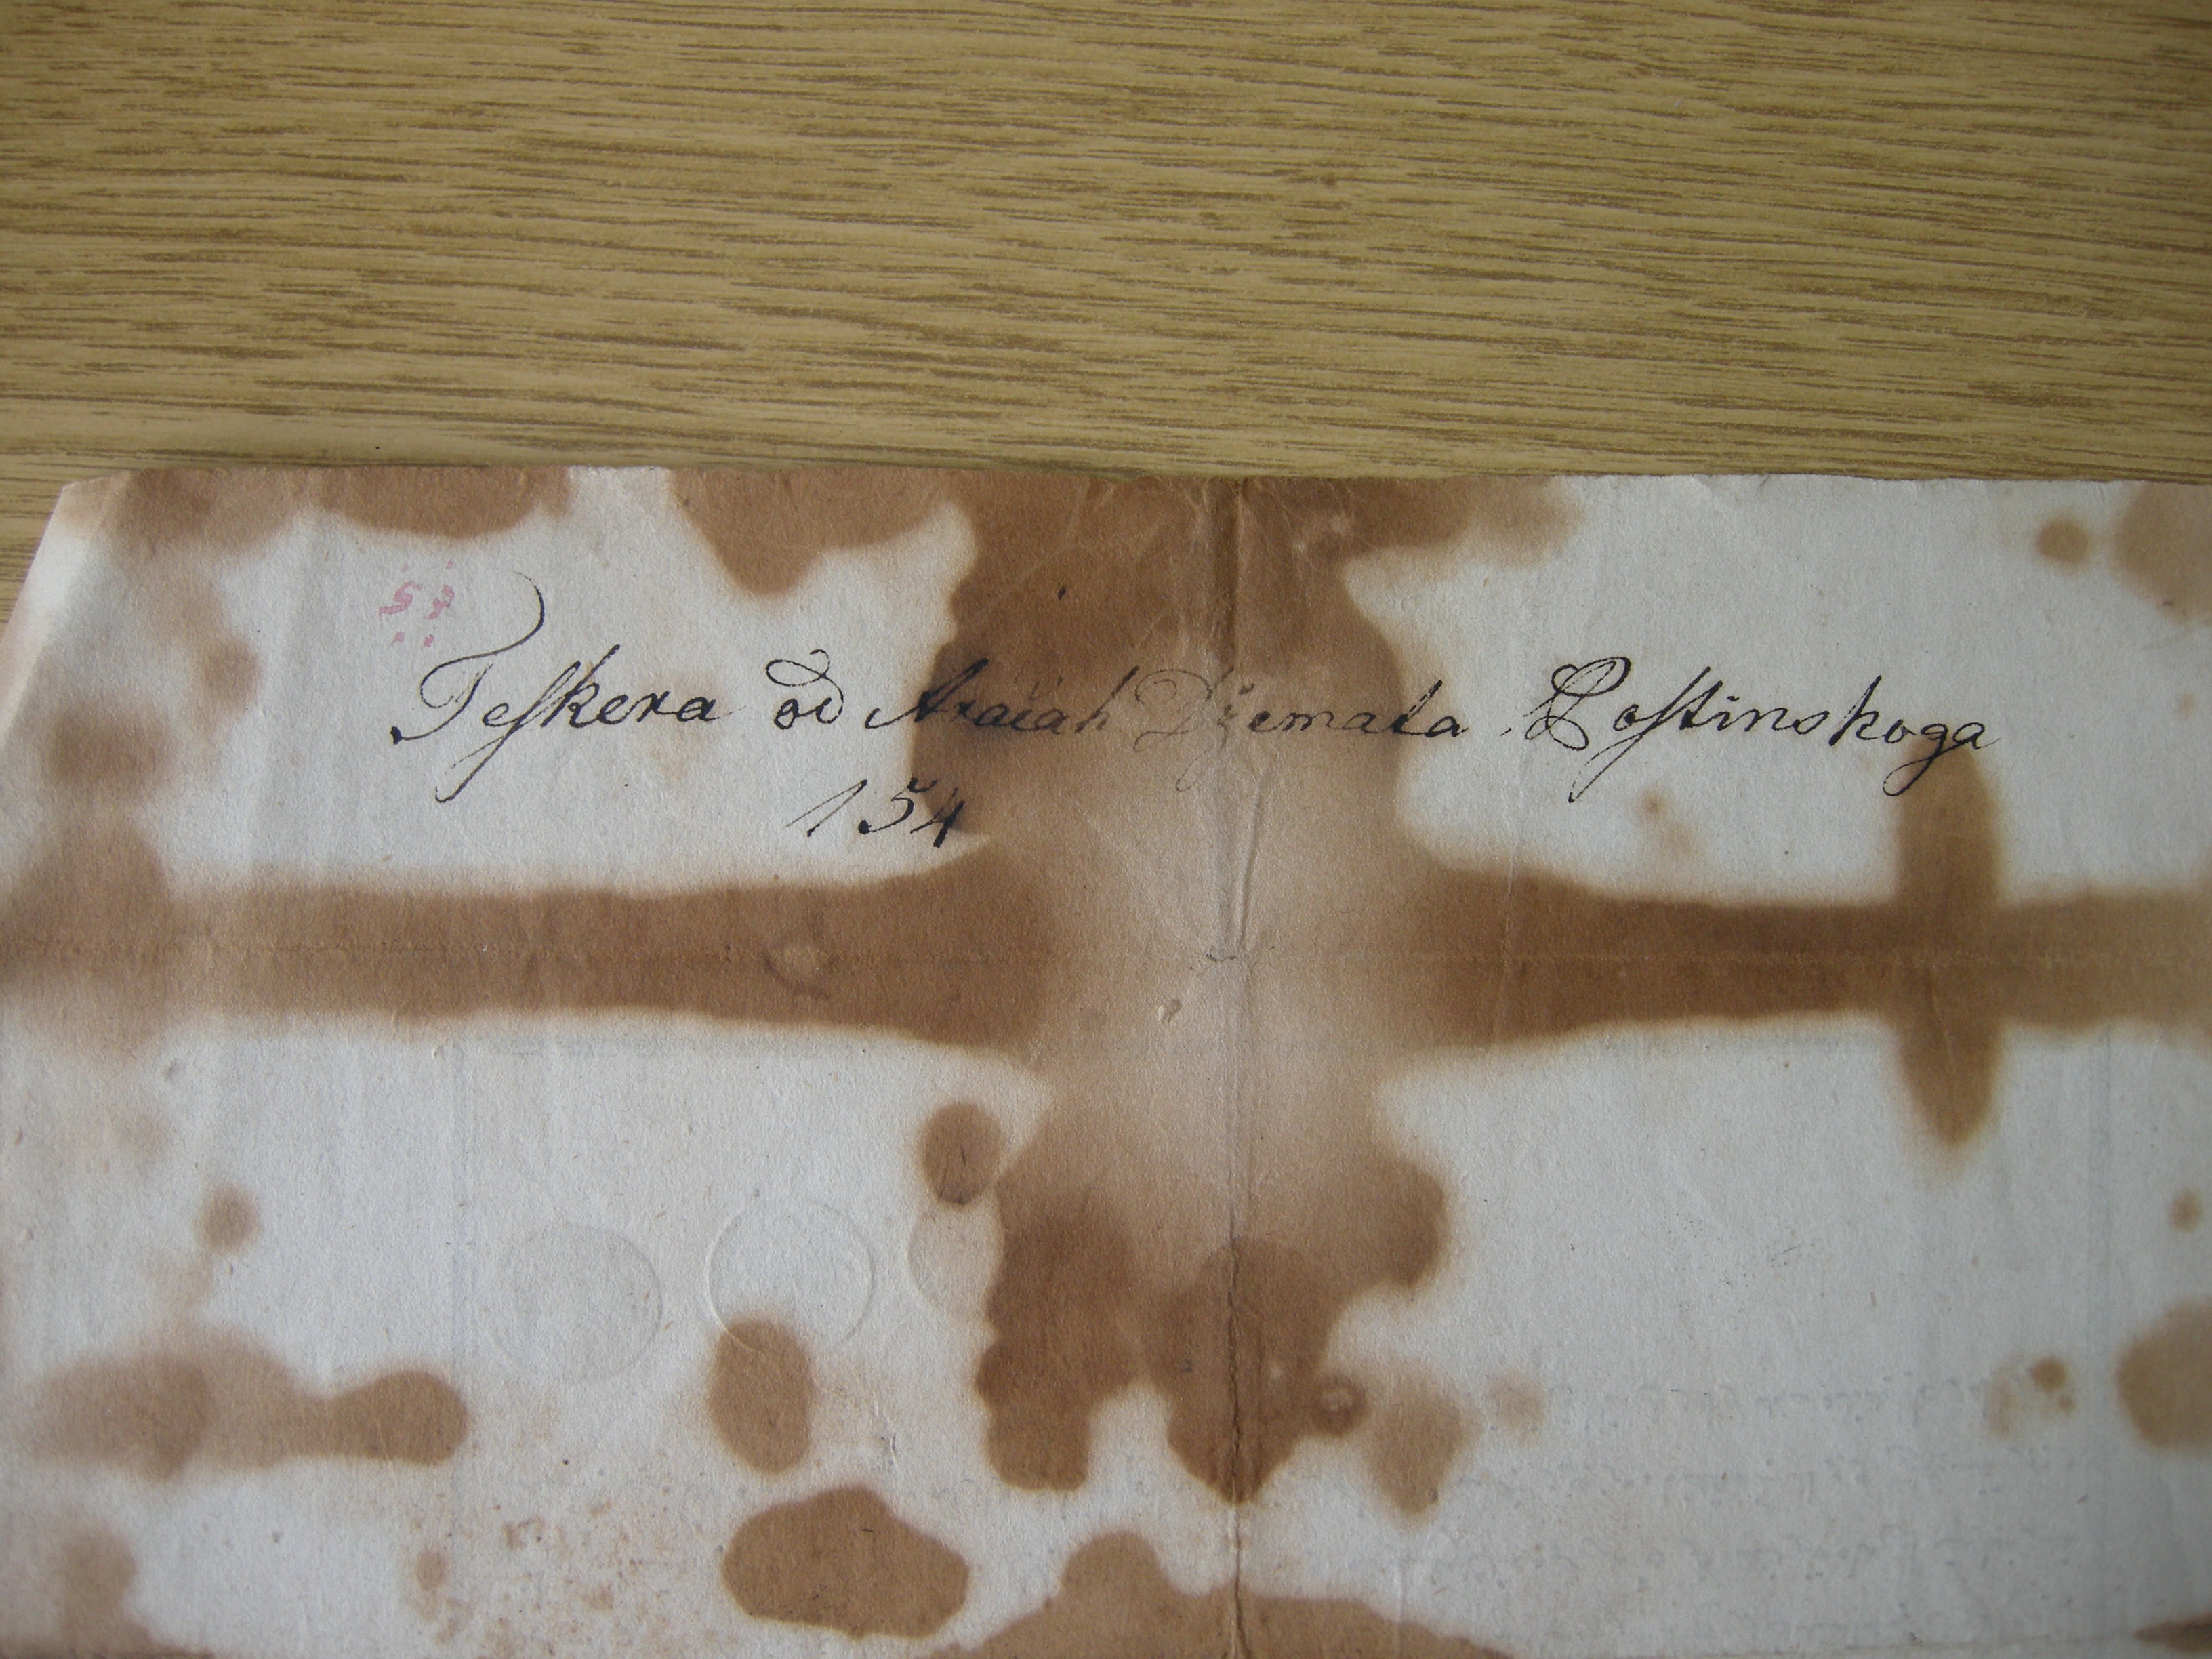 Teſkera od Araćah Dxemata Poſtinskoga
154